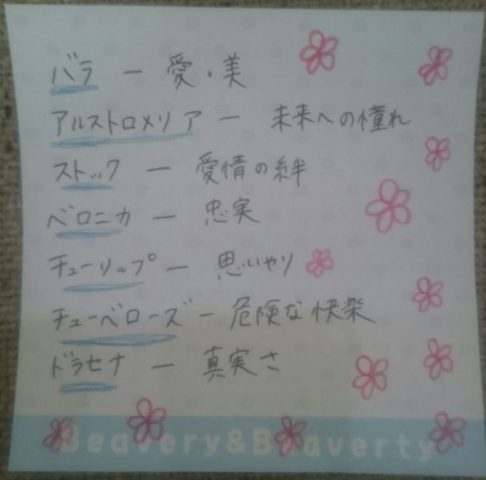 バラ － 愛・美
アルストロメリア － 未来への憧れ
ストック － 愛情の絆
ベロニカ － 忠実
チューリップ － 思いやり
チューベローズ － 危険な快楽
ドラセナ － 真実さ
Beavery&Beaverty